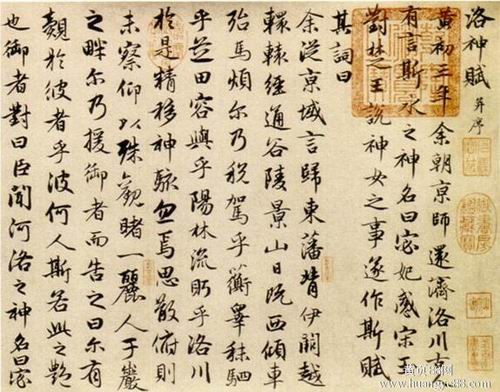 洛神賦 并序
黃初三年余朝京師還濟洛川古
有言斯水之神名曰宓妃感宋玉
對楚王說神女之事遂作斯賦
其詞曰
余從京域言歸東藩背伊闕越
轘轅經通谷陵景山日既西傾車
殆馬煩尔乃稅駕乎蘅皋秣駟
乎芝田容與乎陽林流眄乎洛川
於是精移神駭忽焉思散俯則
未察仰以殊觀睹一麗人于巖
之畔尔乃援御者而告之曰尔有
覿於彼者乎彼何人斯若此之艷
也御者對曰臣聞河洛之神名曰宓
www.huangye88.com